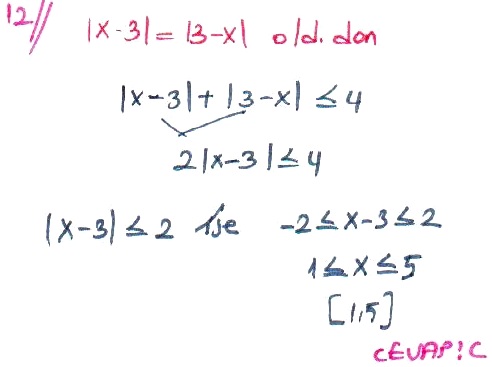 12// |x-3| = |3-x| old. dan
|x-3| + |3-x| ≤ 4
2|x-3| ≤ 4
|x-3| ≤ 2 ise -2 ≤ x-3 ≤ 2
1 ≤ x ≤ 5
[1,5]
CEVAP: C